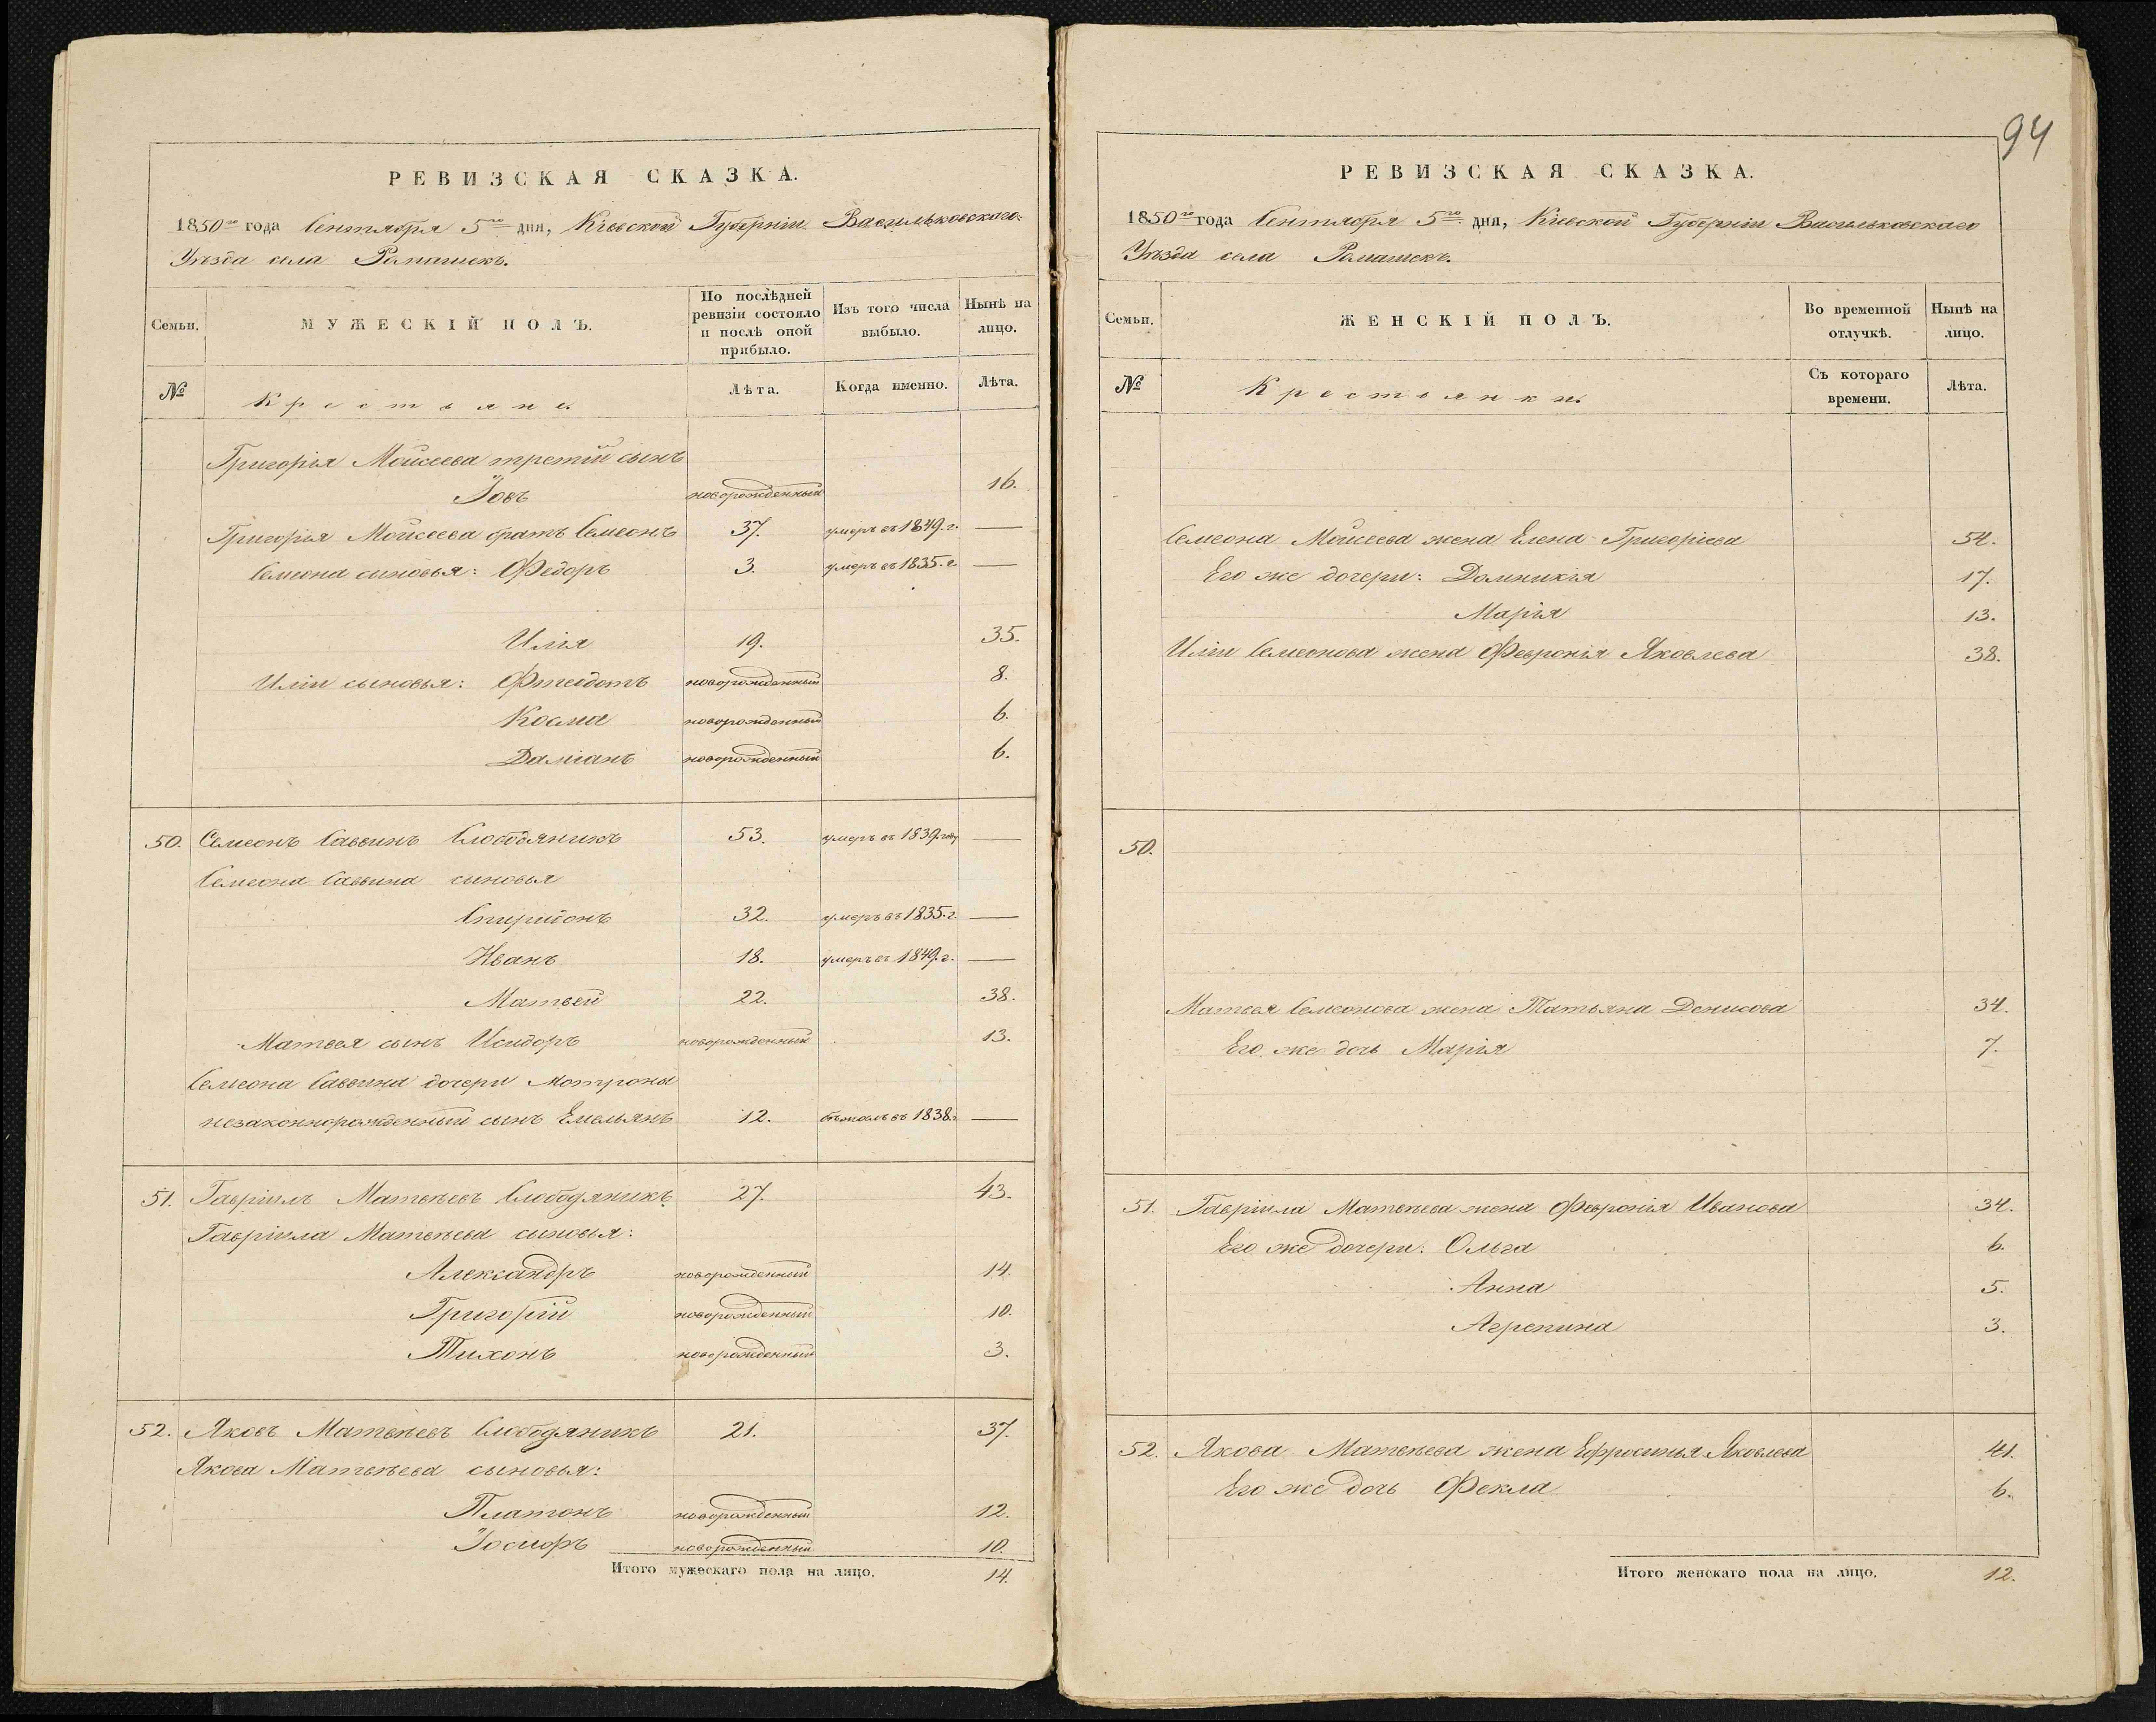 РЕВИЗСКАЯ СКАЗКА.
1850го года Сентября 5го дня, Кіевской Губерніи Васильковскаго
Уѣзда села Ромашекъ.
Семьи.
МУЖЕСКІЙ ПОЛЪ.
По послѣдней ревизіи состояло и послѣ оной прибыло.
Изъ того числа выбыло.
Нынѣ на лицо.
№
Крестьяне
Лѣта.
Когда именно.
Лѣта.
Григорія Мойсеева третій сынъ
Іовъ новорожденный 16.
Григорія Мойсеева братъ Семеонъ 37. умеръ въ 1849. г. —
Семеона синовья: Федоръ 3. умеръ въ 1835. г —
Илія 19. 35.
Иліи сыновья: Фтеодотъ новорожденный 8.
Косма новорожденный 6.
Даміанъ новорожденный 6.
50. Семеонъ Саввинъ Слободяникъ 53. умеръ въ 1839. году —
Семеона Саввина синовья
Спиридонъ 32. умеръ въ 1835. г. —
Иванъ 18. умеръ въ 1849. г. —
Матвей 22. 38.
Матвея сынъ Исидоръ новорожденный 13.
Семеона Саввина дочери Мотроны
незаконнорожденный сынъ Емельянъ 12. бѣжалъ въ 1838 г —
51. Гавріилъ Матвѣевъ Слободяникъ 27. 43.
Гавріила Матвѣева синовья:
Александръ новорожденный 14.
Григорій новорожденный 10.
Тихонъ новорожденный 3.
52. Яковъ Матвѣевъ Слободяникъ 21. 37.
Якова Матвѣева сыновья:
Платонъ новорожденный 12.
Іосифъ новорожденный 10.
Итого мужескаго пола на лицо. 14.
94
РЕВИЗСКАЯ СКАЗКА.
1850го года Сентября 5го дня, Кіевской Губерніи Васильковскаго
Уѣзда села Ромашекъ.
Семьи.
ЖЕНСКІЙ ПОЛЪ.
Во временной отлучкѣ.
Нынѣ на лицо.
№
Крестьянки
Съ котораго времени.
Лѣта.
Семеона Мойсеева жена Елена Григоріева 54.
Его же дочери: Домникія 17.
Марія 13.
Иліи Семеонова жена Февронія Яковлева 38.
50.
Матвея Семеонова жена Татьяна Денисова 34.
Его же дочь Марія 7.
51. Гавріила Матвѣева жена Февронія Иванова 34.
Его же дочери: Ольга 6.
Анна 5.
Агрепина 3.
52. Якова Матвѣева жена Ефросинья Яковлева 41.
Его же дочь Фекла 6.
Итого женскаго пола на лицо. 12.